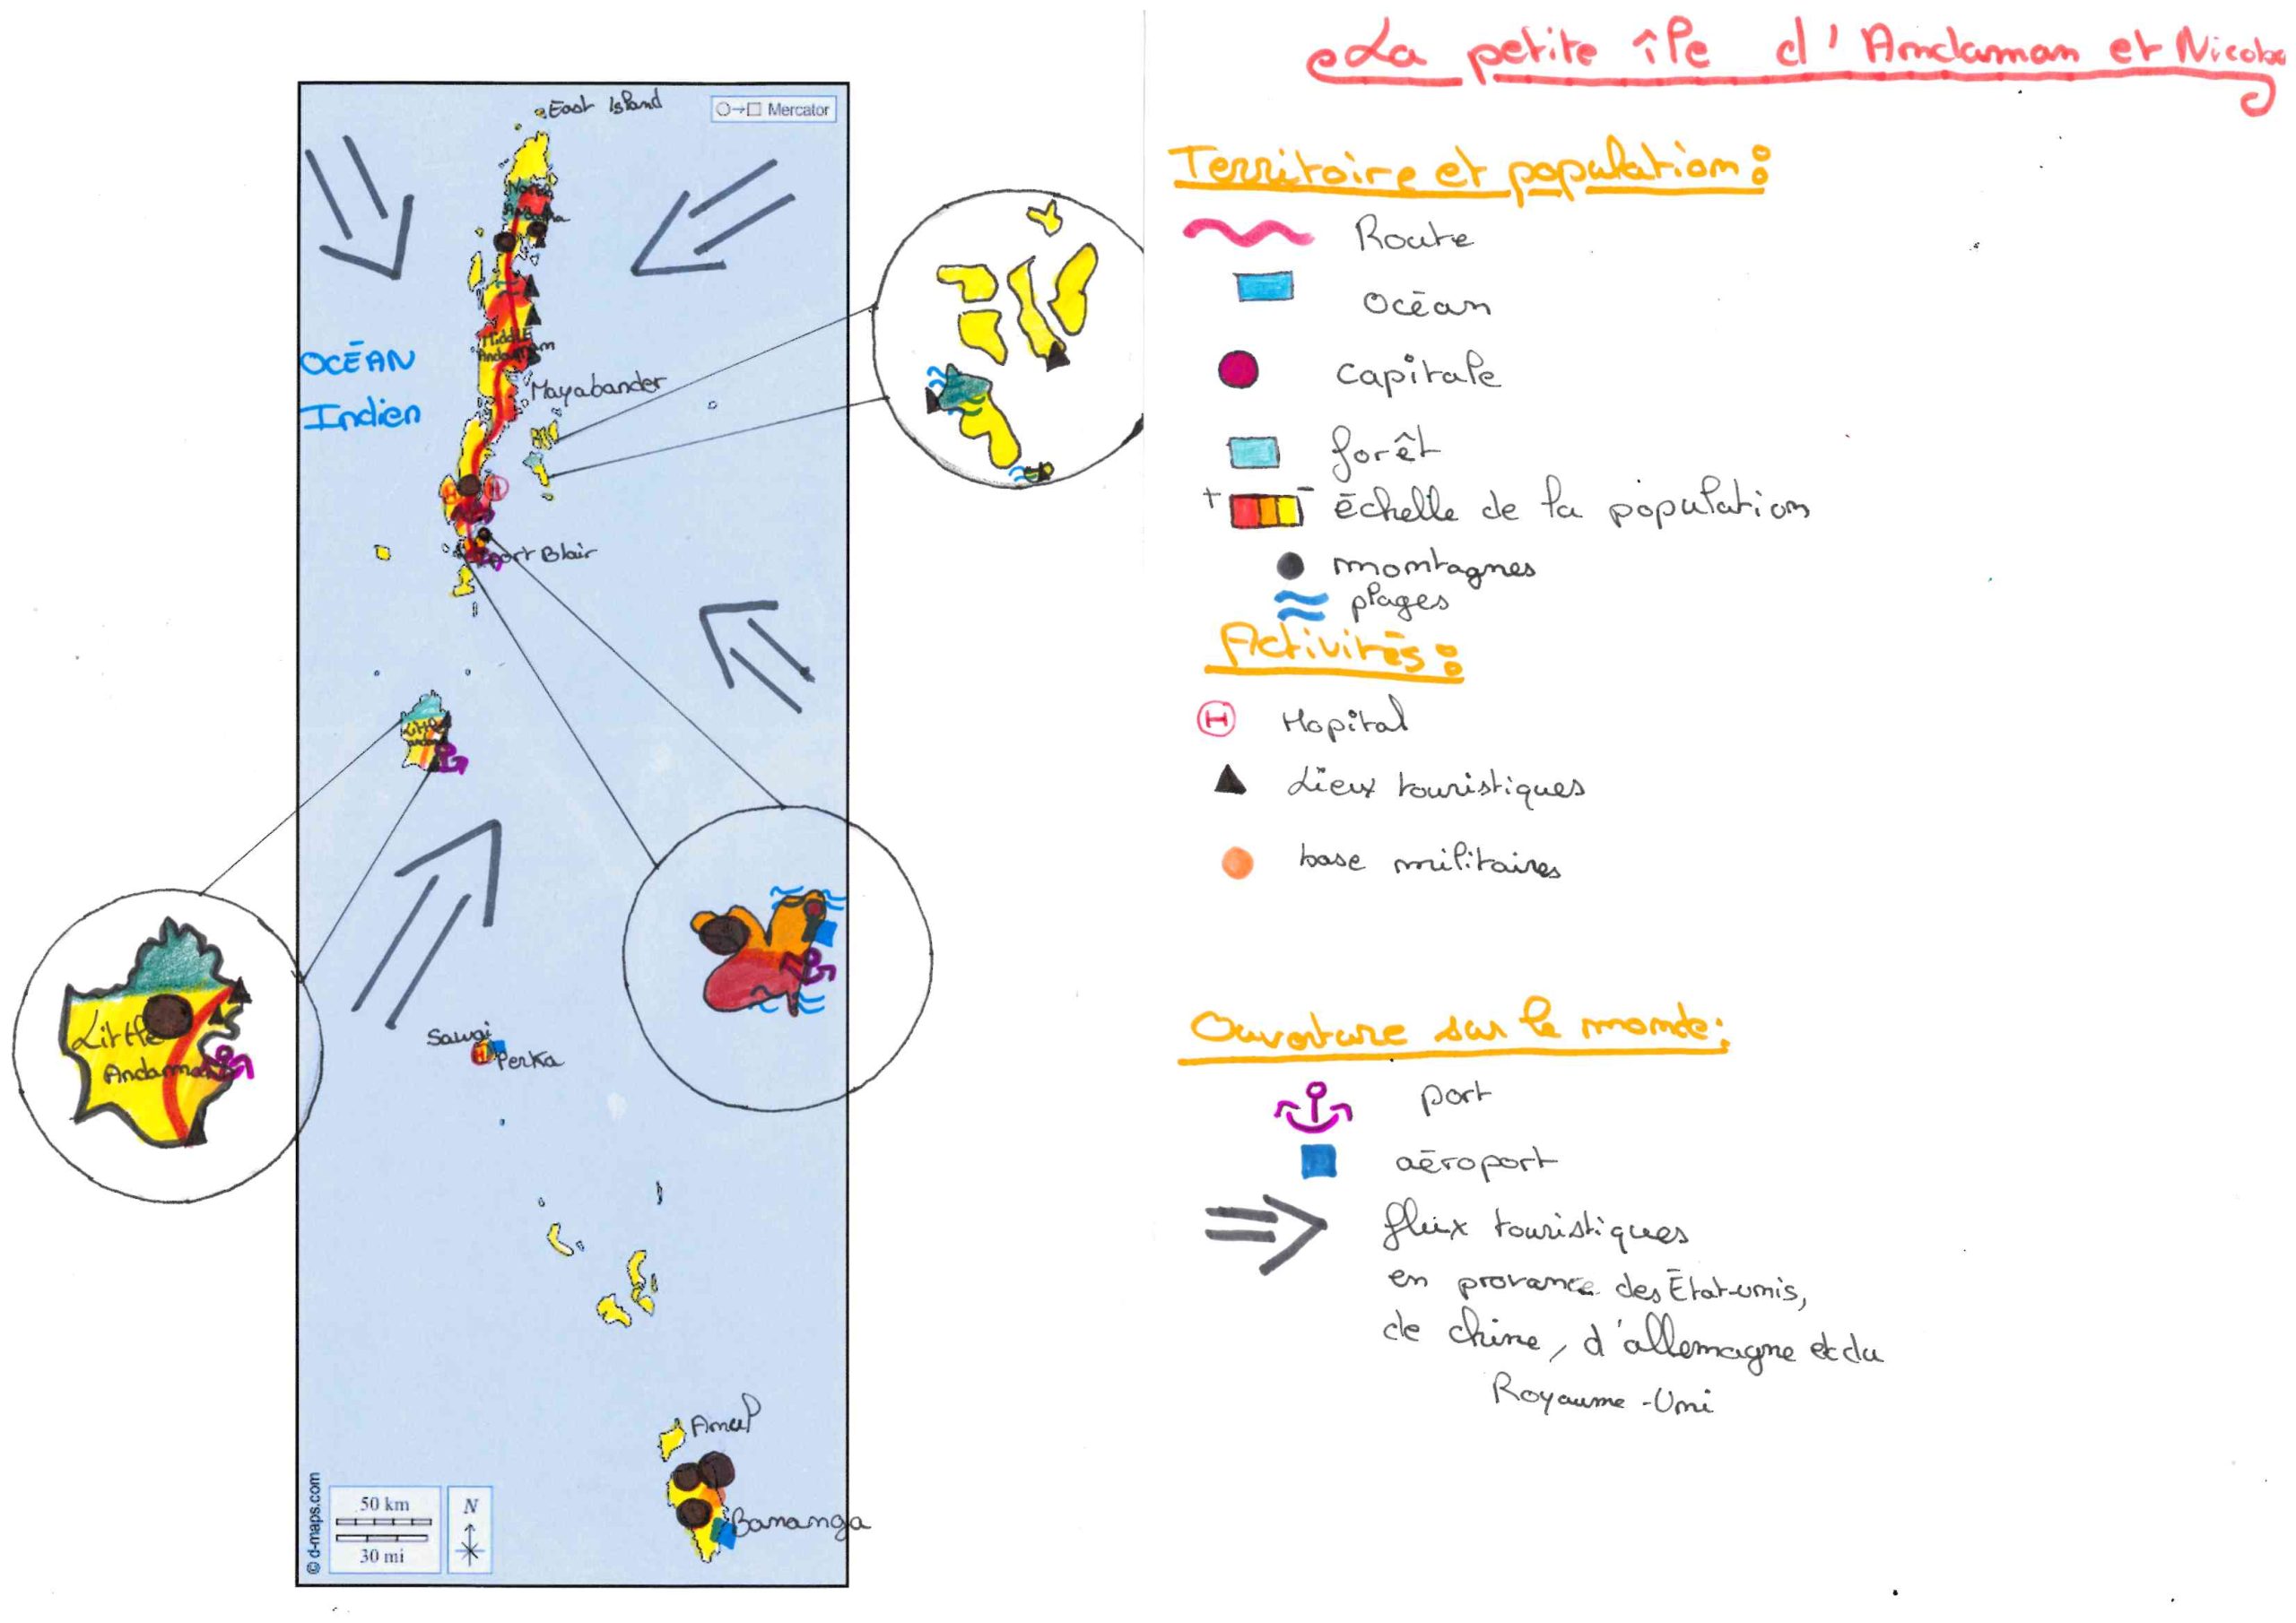 La petite île d'Andaman et Nicoba
East Island
Mercator
North
OCÉAN
Indien
Middle
Andaman
Mayabander
Port Blair
Little
Little
Andaman
Sawai
Perka
Amul
Bananga
50 km
30 mi
N
© d-maps.com
Territoire et population:
Route
Océan
Capitale
forêt
+ - échelle de la population
montagnes
plages
Activités:
H Hopital
Lieux touristiques
base militaires
Ouverture sur le monde:
port
aéroport
flux touristiques
en provance des État-unis,
de chine, d'allemagne et du
Royaume-Uni